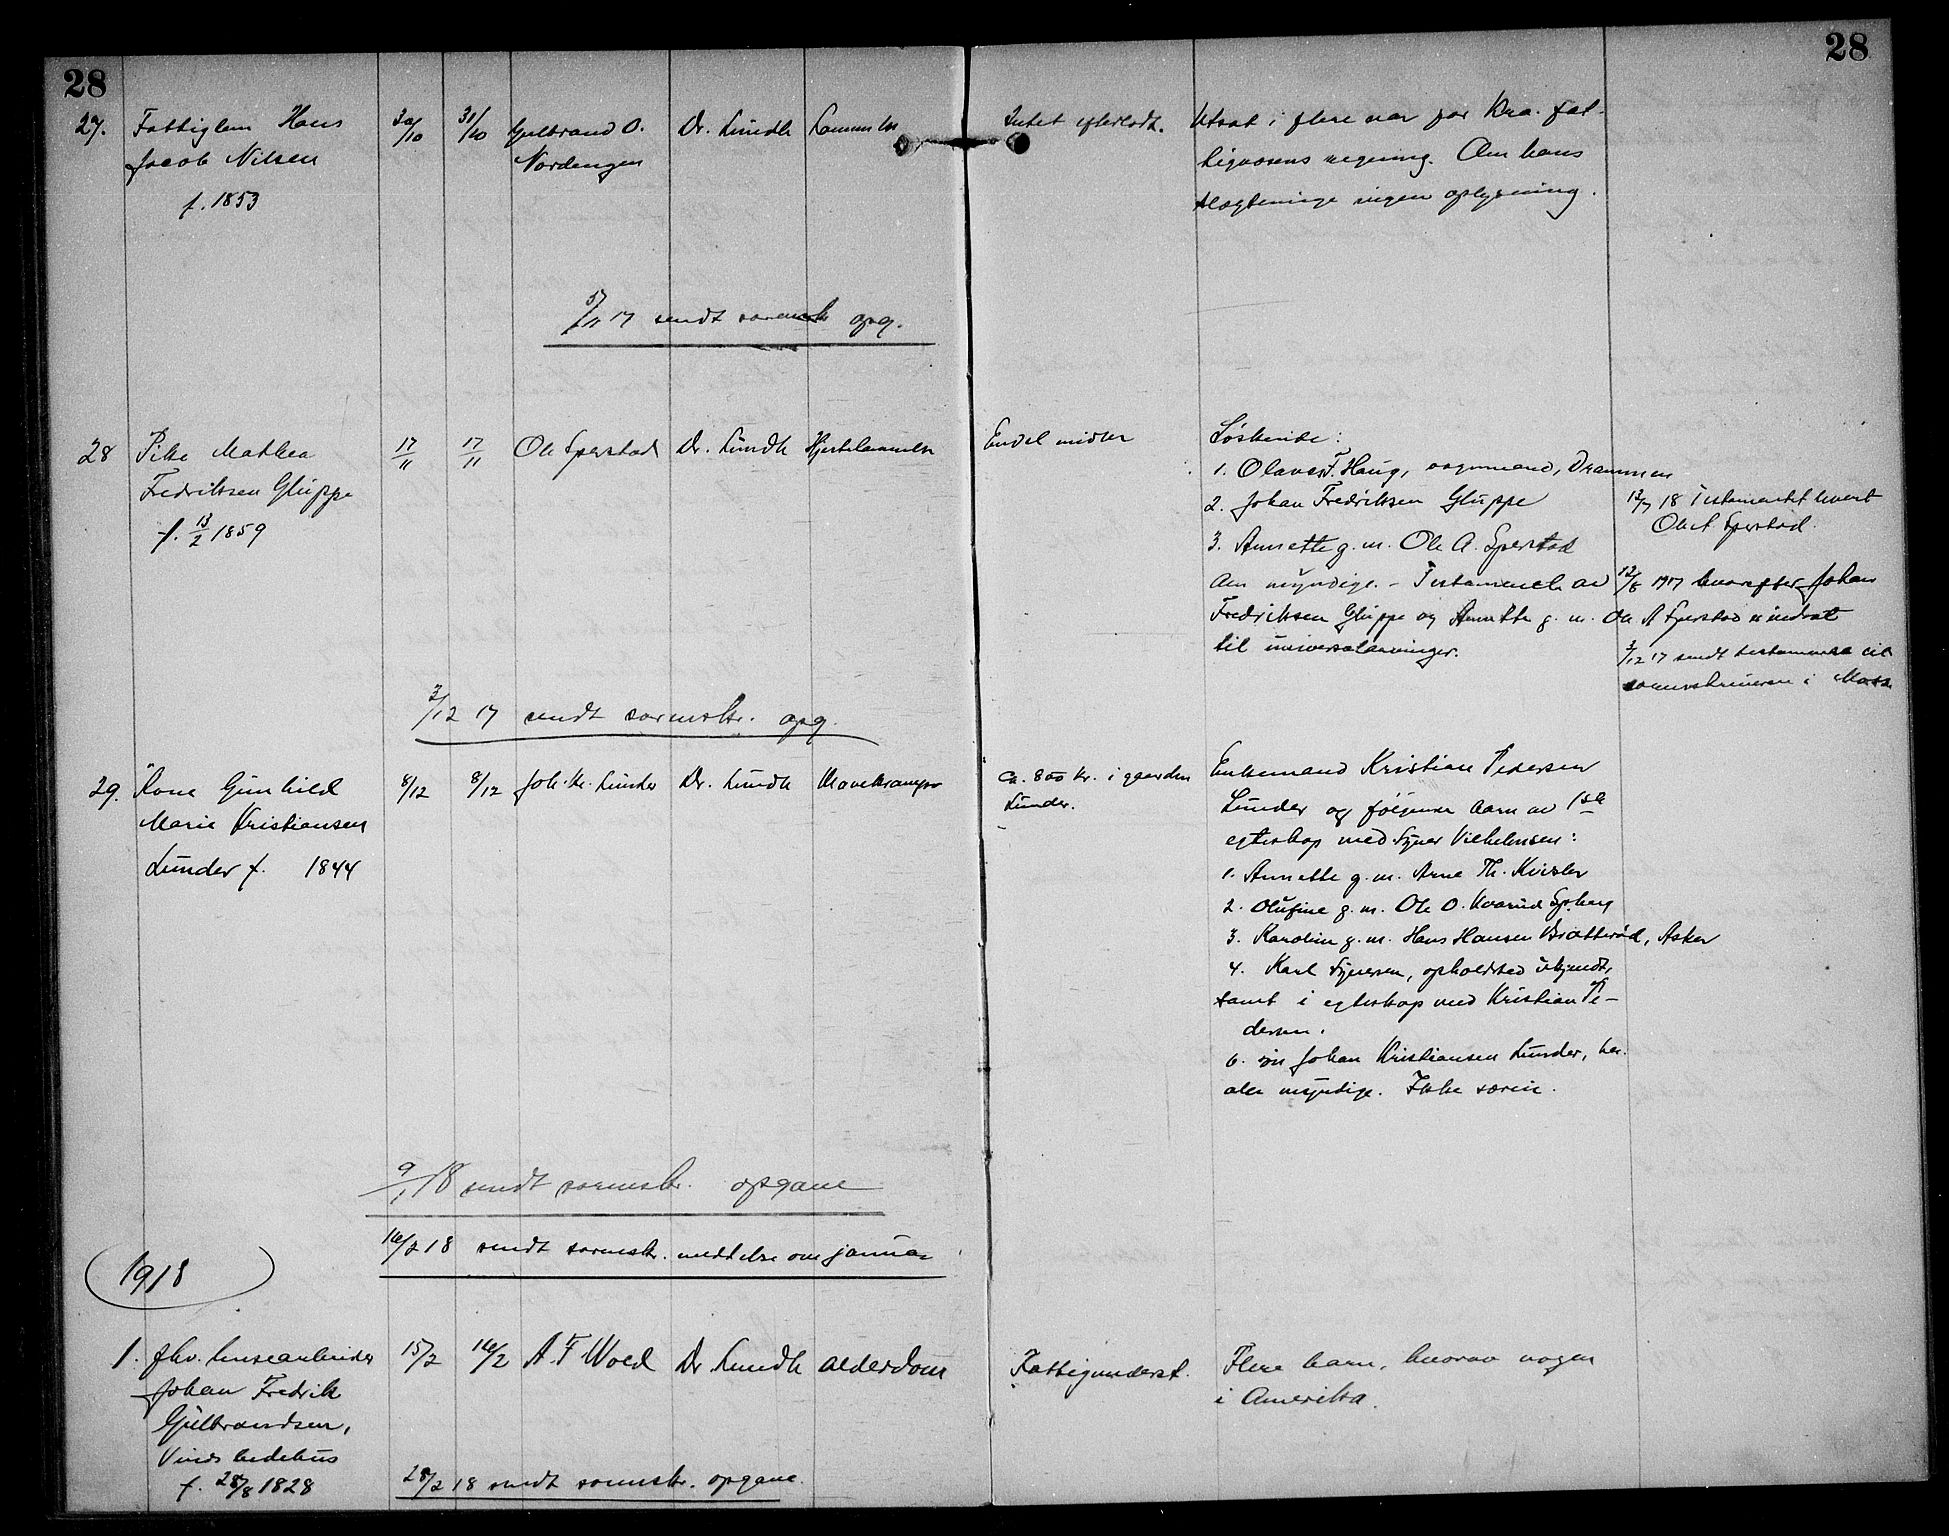 28
28
27. Fattiglem Hans 30/10 31/10 Gulbrand O. Dr. Lundh Lammelse Intet efterladt. Utsat i flere aar for Kra. fat-
Jacob Nilsen Nordengen tigvæsens regning. Om hans
f. 1853 slegtninge ingen oplysning.
5/11 17 sendt sorenskr opg.
28 Pike Mathea 17/11 17/11 Ole Sperstad Dr. Lundh Hjertelammelse Endel midler Søskende:
Fredriksen Gluppe 1. Olaves F. Haug, vognmand, Drammen
f. 13/2 1859 2. Johan Fredriksen Gluppe
3. Annette g. m. Ole A. Sperstad
alle myndige. – Testamente av 12/8 1917 hvorefter Johan
Fredriksen Gluppe og Annette g. m. Ole A Sperstad er indsat
til universalarvinger.
18 Testamentet hvert
Ole A Sperstad.
3/12 17 sendt testamente til
sorenskriveren i Moss
3/12 17 sendt sorenskr. opg.
29. Kone Gunhild 8/12 8/12 Joh. Kr. Lunder Dr. Lundh Mavekramper Ca. 800 kr. i gaarden Enkemand Kristian Pedersen
Marie Kristiansen Lunder. Lunder og følgende barn av 1ste
Lunder f. 1844 egteskap med Syver Vilhelmsen:
1. Annette g. m. Arne Th. Kvisler
2. Olufine g. m. Ole O. Kvarud Spberg
3. Karoline g. m. Hans Hansen Bratterød, Asker
4. Karl Syversen, opholdsted ukjendt,
samt i egteskap med Kristian Pe-
dersen.
6. søn Johan Kristiansen Lunder, her.
alle myndige. Ikke særeie.
9/1 18 sendt sorenskr. opgave
16/2 18 sendt sorenskr. meddelse om januar
1918
1. fhv. brusearbeider 15/2 16/2 A. F Wold Dr Lundh alderdom Fattigunderst. Flere barn, hvorav nogen
Johan Fredrik i Amerika.
Gulbrandsen,
Vinds bedehus
f. 28/8 1828
28/2 18 sendt sorenskr. opgave.